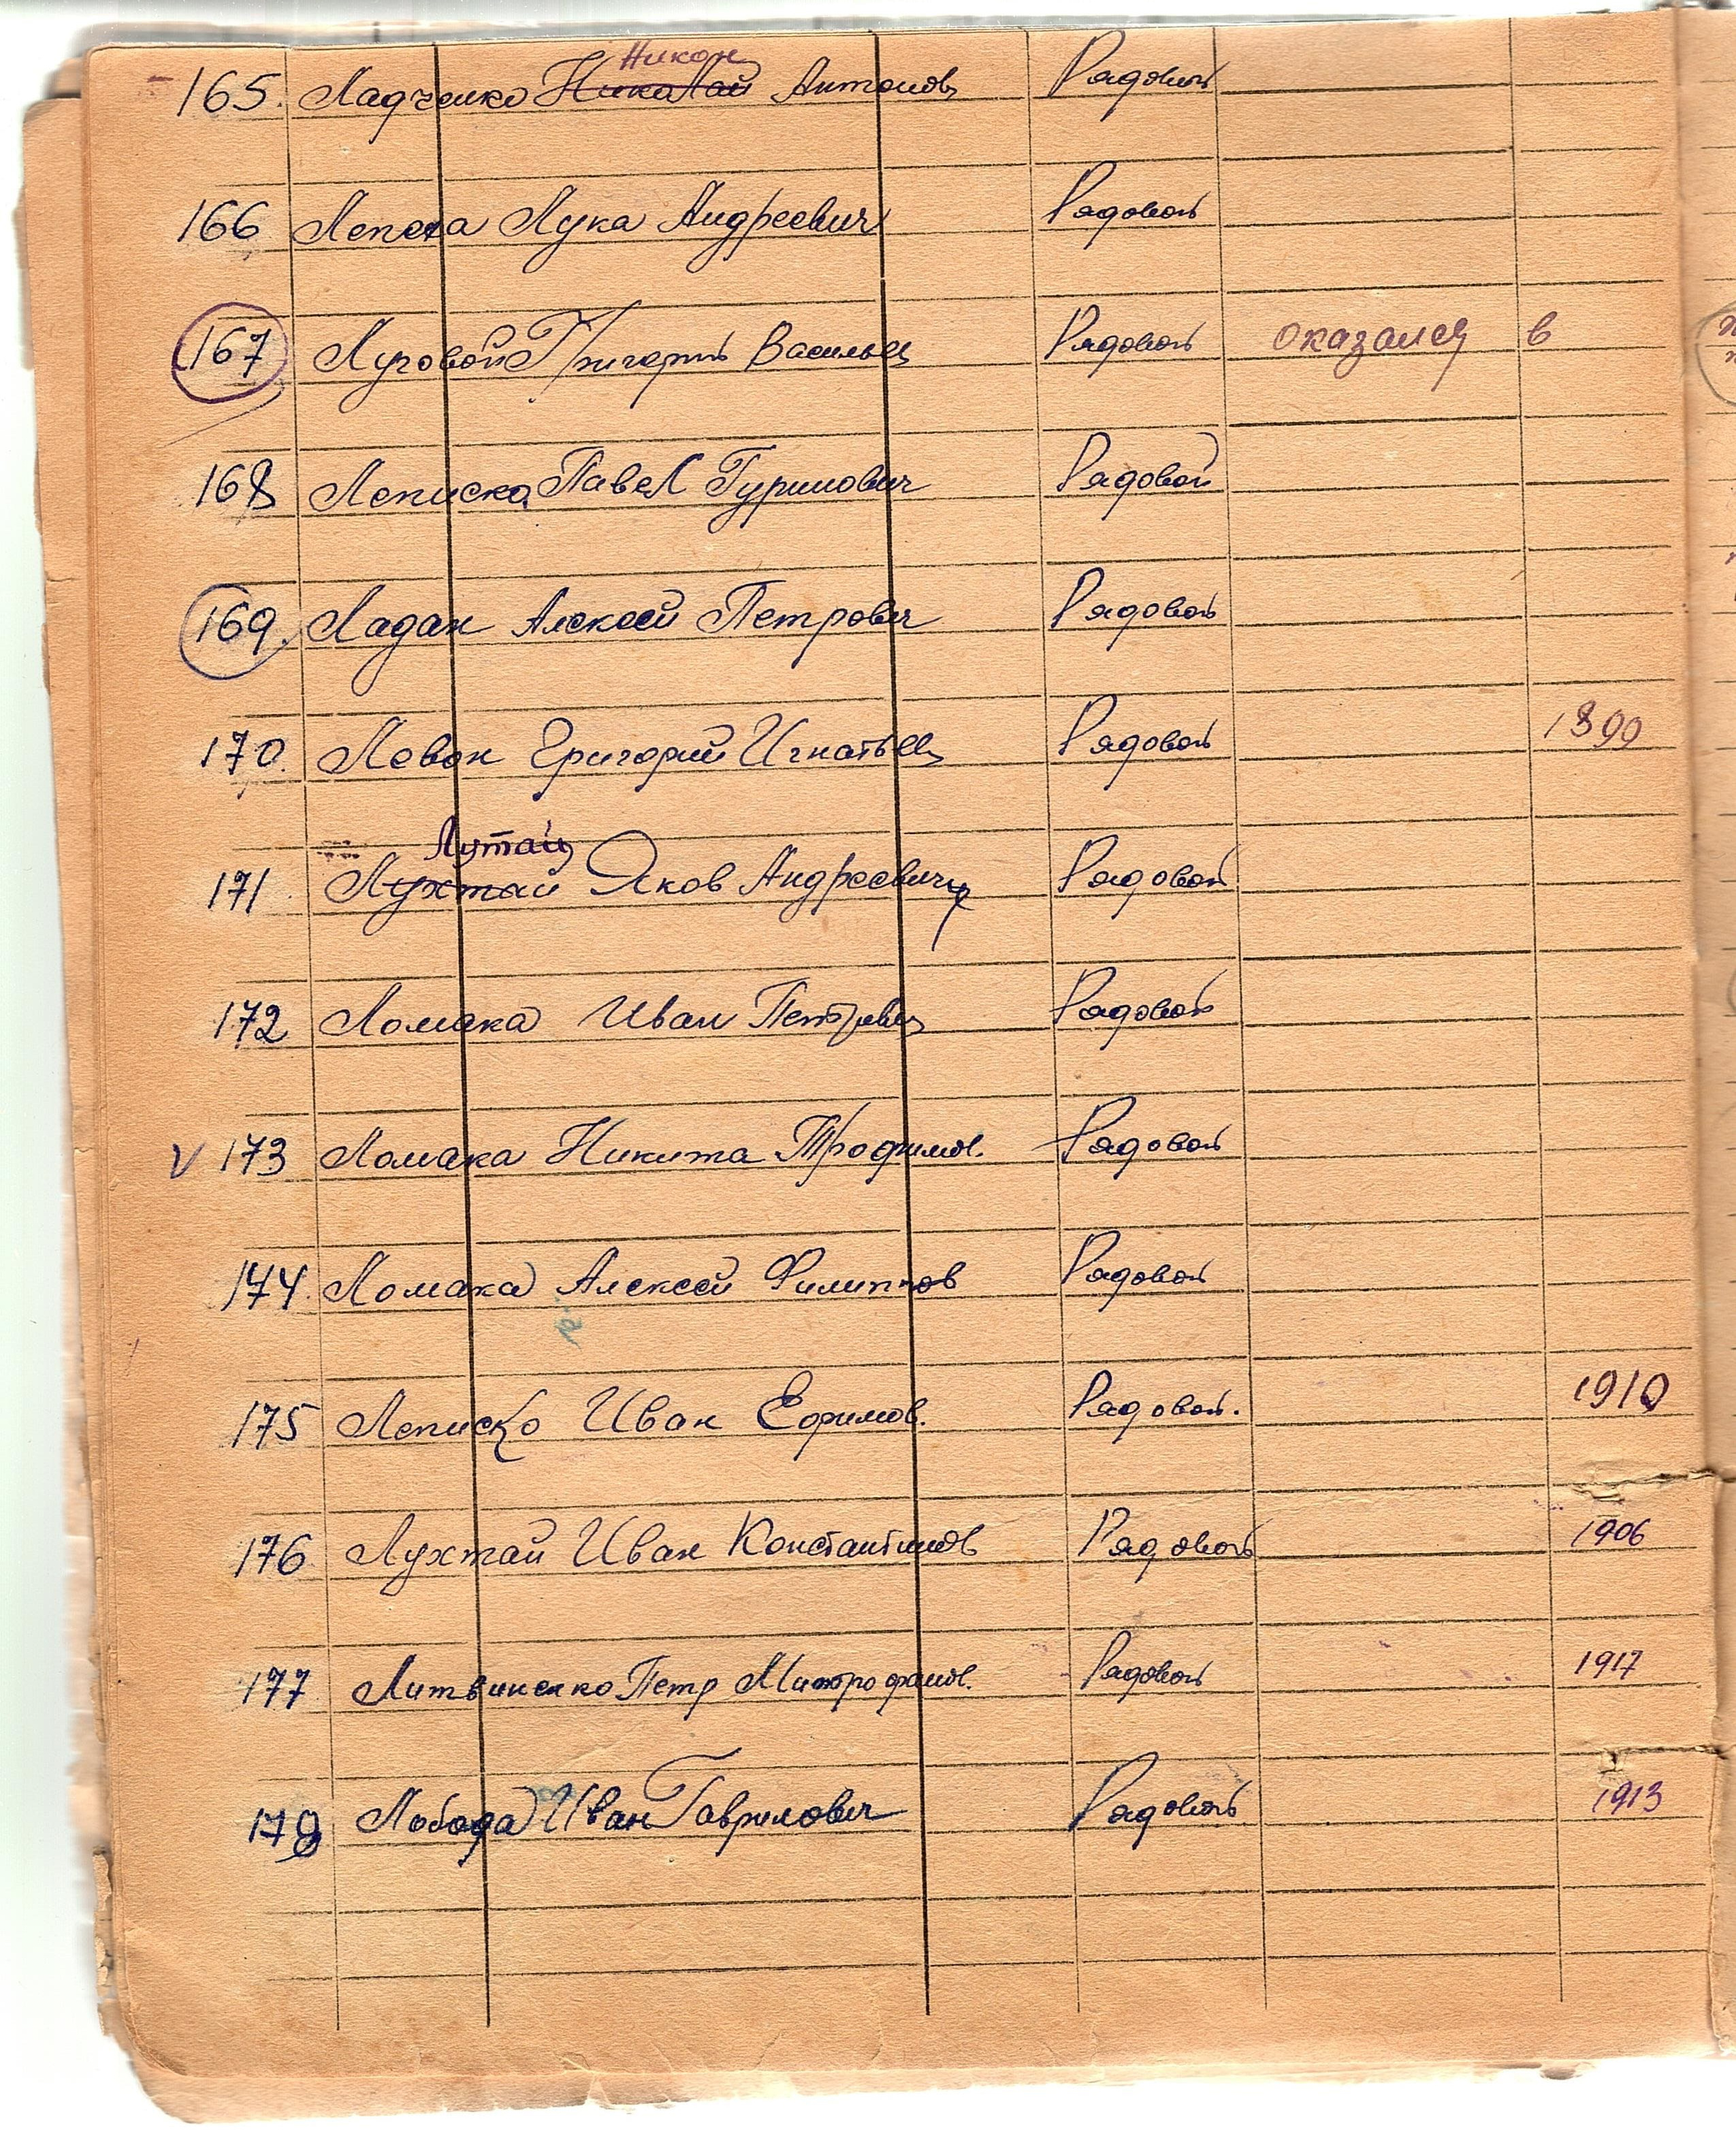 Никон
165. Ладченко Николай Антонов Рядовой
166 Лепета Лука Андреевич Рядовой
167 Луговой Григорий Васильев Рядовой оказался в
168 Леписко Павел Гуринович Рядовой
169. Ладан Алексей Петрович Рядовой
170. Левон Григорий Игнатьев Рядовой 1899
Лутай
171. Лухтай Яков Андреевич Рядовой
172 Ломака Иван Петрович Рядовой
V 173 Ломака Никита Трофимов. Рядовой
174. Ломака Алексей Филиппов Рядовой
175 Леписко Иван Ефимов. Рядовой. 1910
176 Лухтай Иван Константинов Рядовой 1906
177 Литвиненко Петр Митрофанов. Рядовой 1917
178 Лобода Иван Гаврилович Рядовой 1913